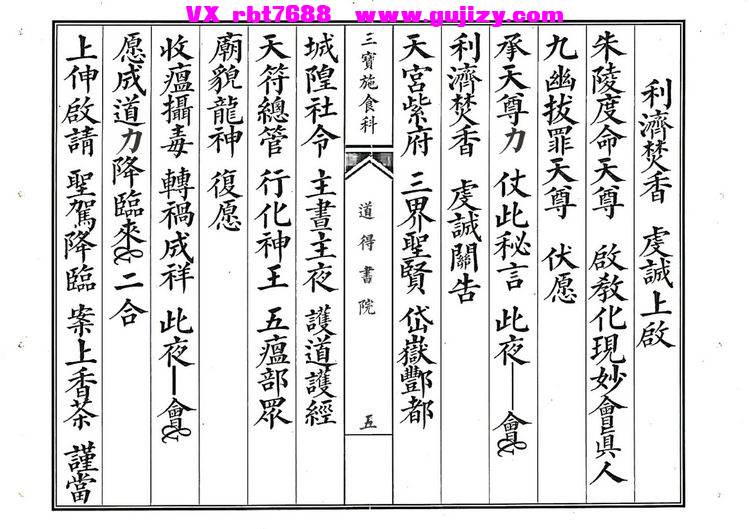 VX rbt7688 www.gujizy.com
利濟焚香 虔誠上啟
朱陵度命天尊 啟教化現妙會眞人
九幽拔罪天尊 伏愿
承天尊力 仗此秘言 此夜 會
利濟焚香 虔誠關告
天宮紫府 三界聖賢 岱嶽酆都
三寶施食科 道得書院 五
城隍社令 主晝主夜 護道護經
天符總管 行化神王 五瘟部眾
廟貌龍神 復愿
收瘟攝毒 轉禍成祥 此夜 會
愿成道力降臨來 二合
上伸啟請 聖駕降臨 案上香茶 謹當